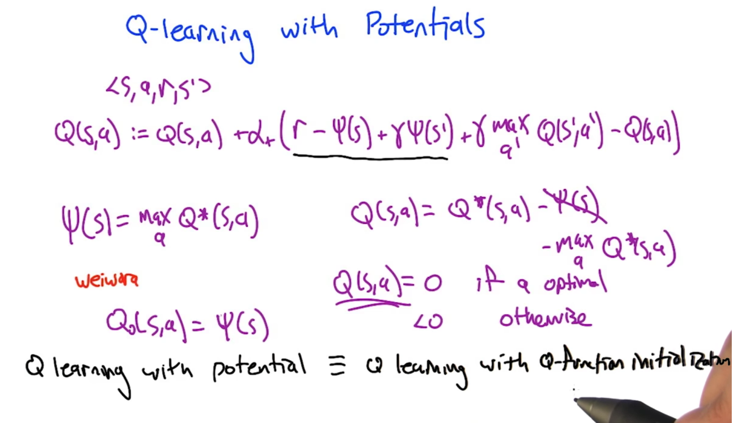 Q-learning with Potentials
<s, a, r, s'>
Q(s,a) := Q(s,a) + α_t (r - Ψ(s) + γΨ(s') + γ max_a' Q(s',a') - Q(s,a))
Ψ(s) = max_a Q*(s,a)
Q(s,a) = Q*(s,a) - Ψ(s)
- max_a Q*(s,a)
weiwora
Q(s,a) = 0 if a optimal
<0 otherwise
Q₀(s,a) = Ψ(s)
Q learning with potential ≡ Q learning with Q-function initialization